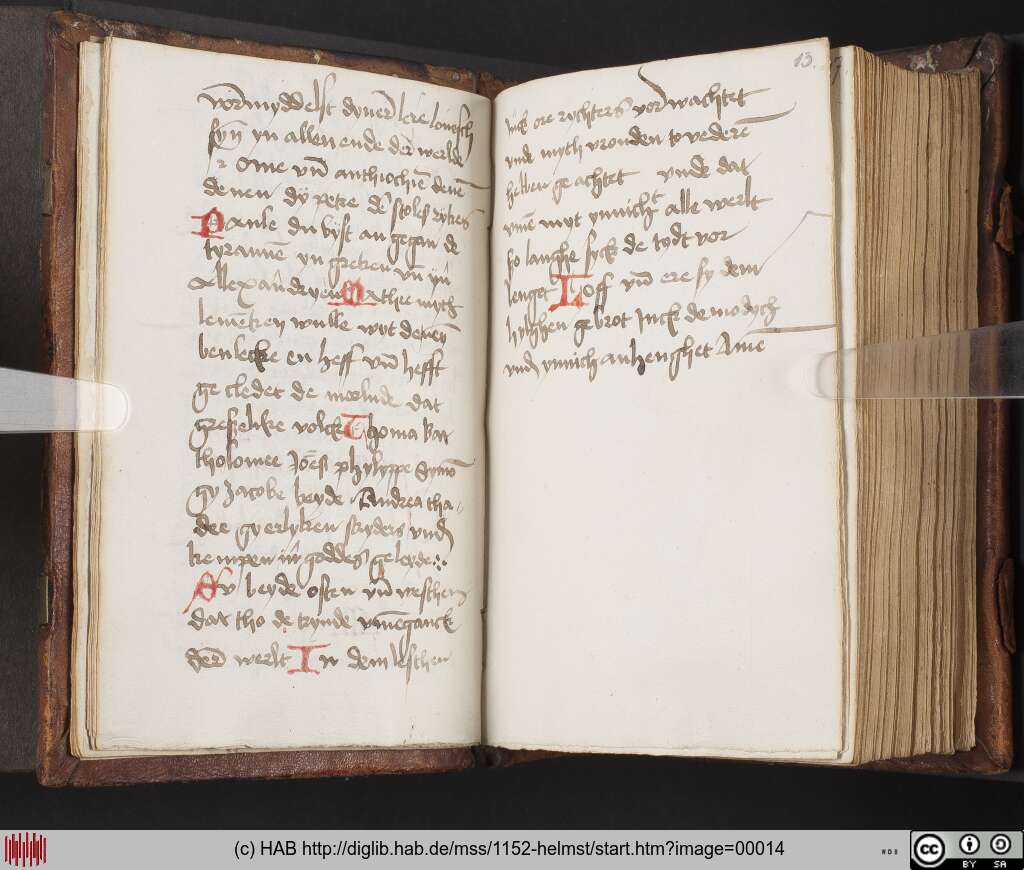 vormyddelst dyner lere louesch
syn yn allen ende der werlde
Ome vn̄ anthiochiē denē
denen dy petre des stoles rykes
Paule du byst an gegan de
tyrannē yn greken vn̄ yn
Allexandryen Mathee myth
wulle wyt denen
en heff vn̄ hefft
ge cledet de morlude dat
greselike volck Thoma bar
tholomee Joēs phylyppe Symō
gy Jacobe beyde Andrea tha
dee gy erlyken stryders vnd
kempen in goddes geleyde
Av beyde osten vn̄ westhen
dat tho de trynde vmēganck
der werlt In dem lesthen
ore rychters vor wachtet
vnde myth vronden to vederē
hebben ge achtet vnde dat
vmē myt ynnicht alle werlt
so langhe syck de tydt vor
lenget Loff vn̄ ere sy dem
hylghen gebrot Juck demodych
vnd ynnich anhenghet Amē
13.
(c) HAB http://diglib.hab.de/mss/1152-helmst/start.htm?image=00014
WDB
cc BY SA